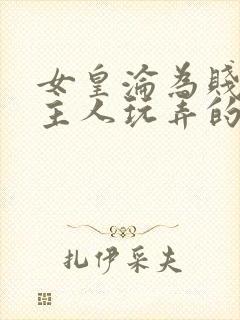 女皇淪為賤
主人玩弄的
扎伊采夫